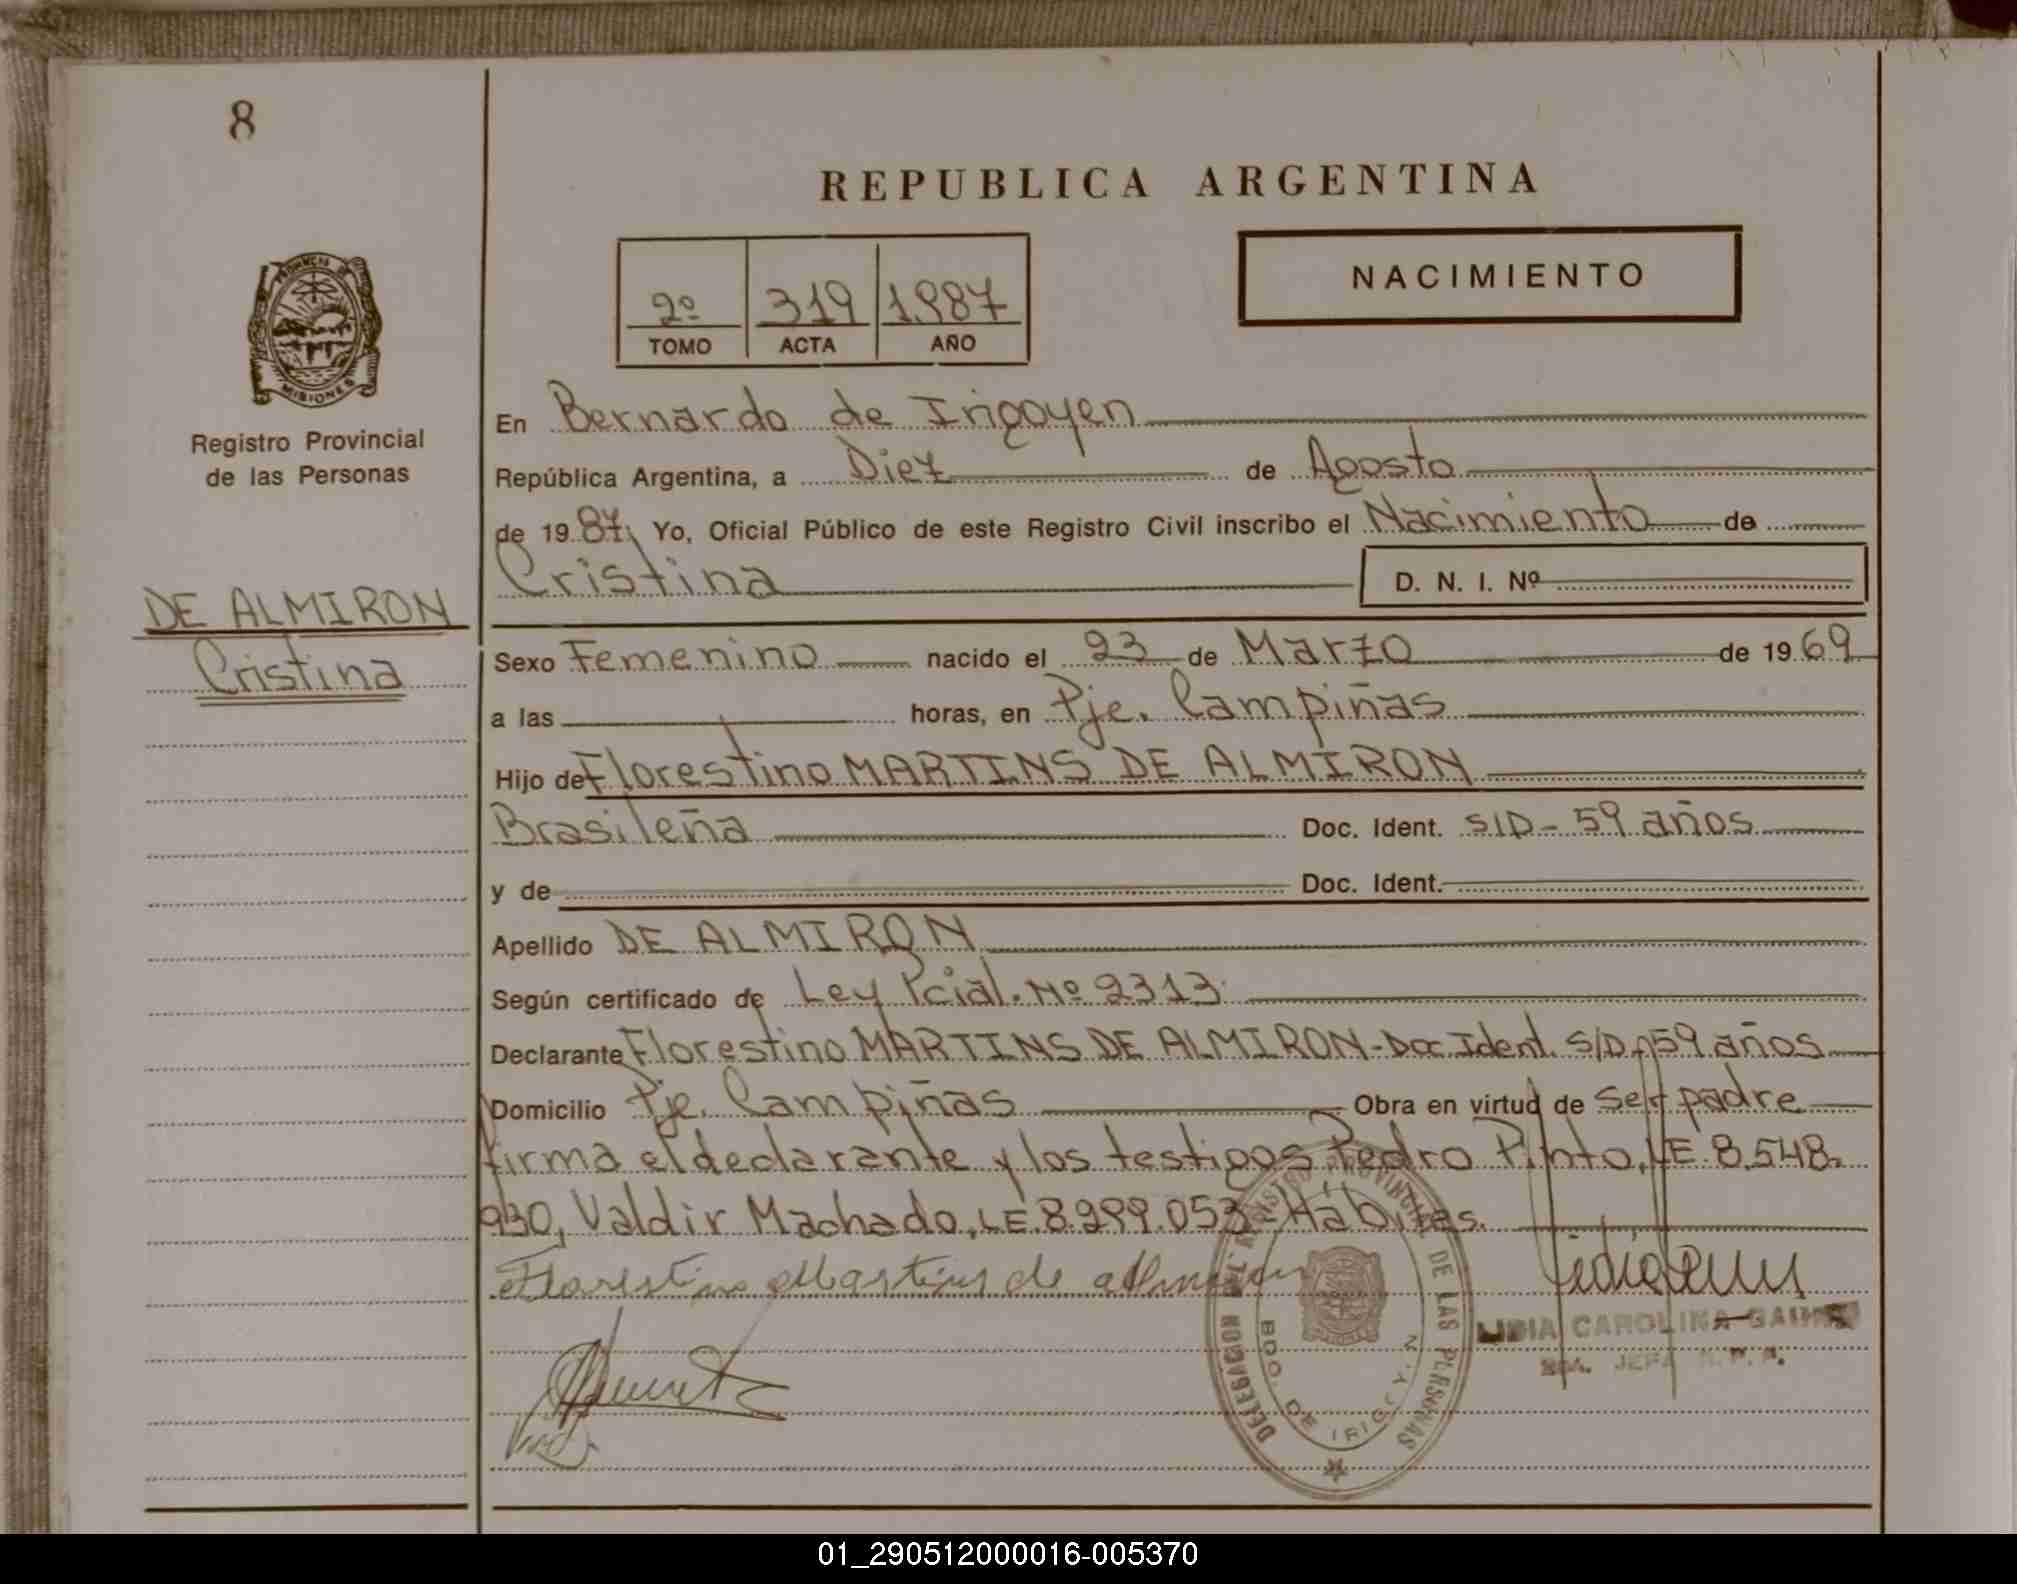 8
REPUBLICA ARGENTINA
2º 319 1987
TOMO ACTA AÑO
NACIMIENTO
PROVINCIA DE
MISIONES
Registro Provincial
de las Personas
DE ALMIRON
Cristina
En Bernardo de Irigoyen
República Argentina, a Diez de Agosto
de 1987, Yo, Oficial Público de este Registro Civil inscribo el Nacimiento de
Cristina D. N. I. Nº
Sexo Femenino nacido el 23 de Marzo de 1969
a las horas, en Pje. Campiñas
Hijo de Florestino MARTINS DE ALMIRON
Brasileña Doc. Ident. S/D - 59 años
y de Doc. Ident.
Apellido DE ALMIRON
Según certificado de Ley Pcial. Nº 2313
Declarante Florestino MARTINS DE ALMIRON - Doc Ident. S/D - 59 años
Domicilio Pje. Campiñas Obra en virtud de ser padre
firma el declarante y los testigos Pedro Pinto, LE 8.548.
930, Valdir Machado, LE. 8.299.053 - Hábiles.
Florestino Martins de Almiron
DELEGACION REGISTRO PROVINCIAL DE LAS PERSONAS
BDO. DE IRIGOYEN
LIDIA CAROLINA
JEFA
01_290512000016-005370